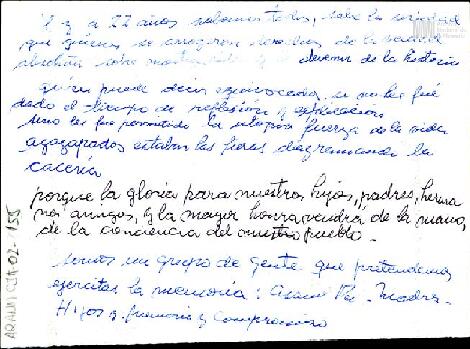 y a 22 años sabemos todos, toda la sociedad
que quienes se arrogaron derechos de la verdad
absoluta sobre nuestras devenir de la historia
quién puede decir equivocada, si no les fué
dado el tiempo de reflexión y explicación
sino les fue permitido la fuerza de la vida
agazapados estaban las fieras diagramando la
cacería
porque la gloria para nuestros hijos, padres, herma
nos amigos, y la mayor honra vendrá de la mano,
de la conciencia del nuestro pueblo.
somos un grupo de gente que pretendemos
ejercitar la memoria: Madres
Hijos y memoria y compromiso
ARANM CTA-02-155